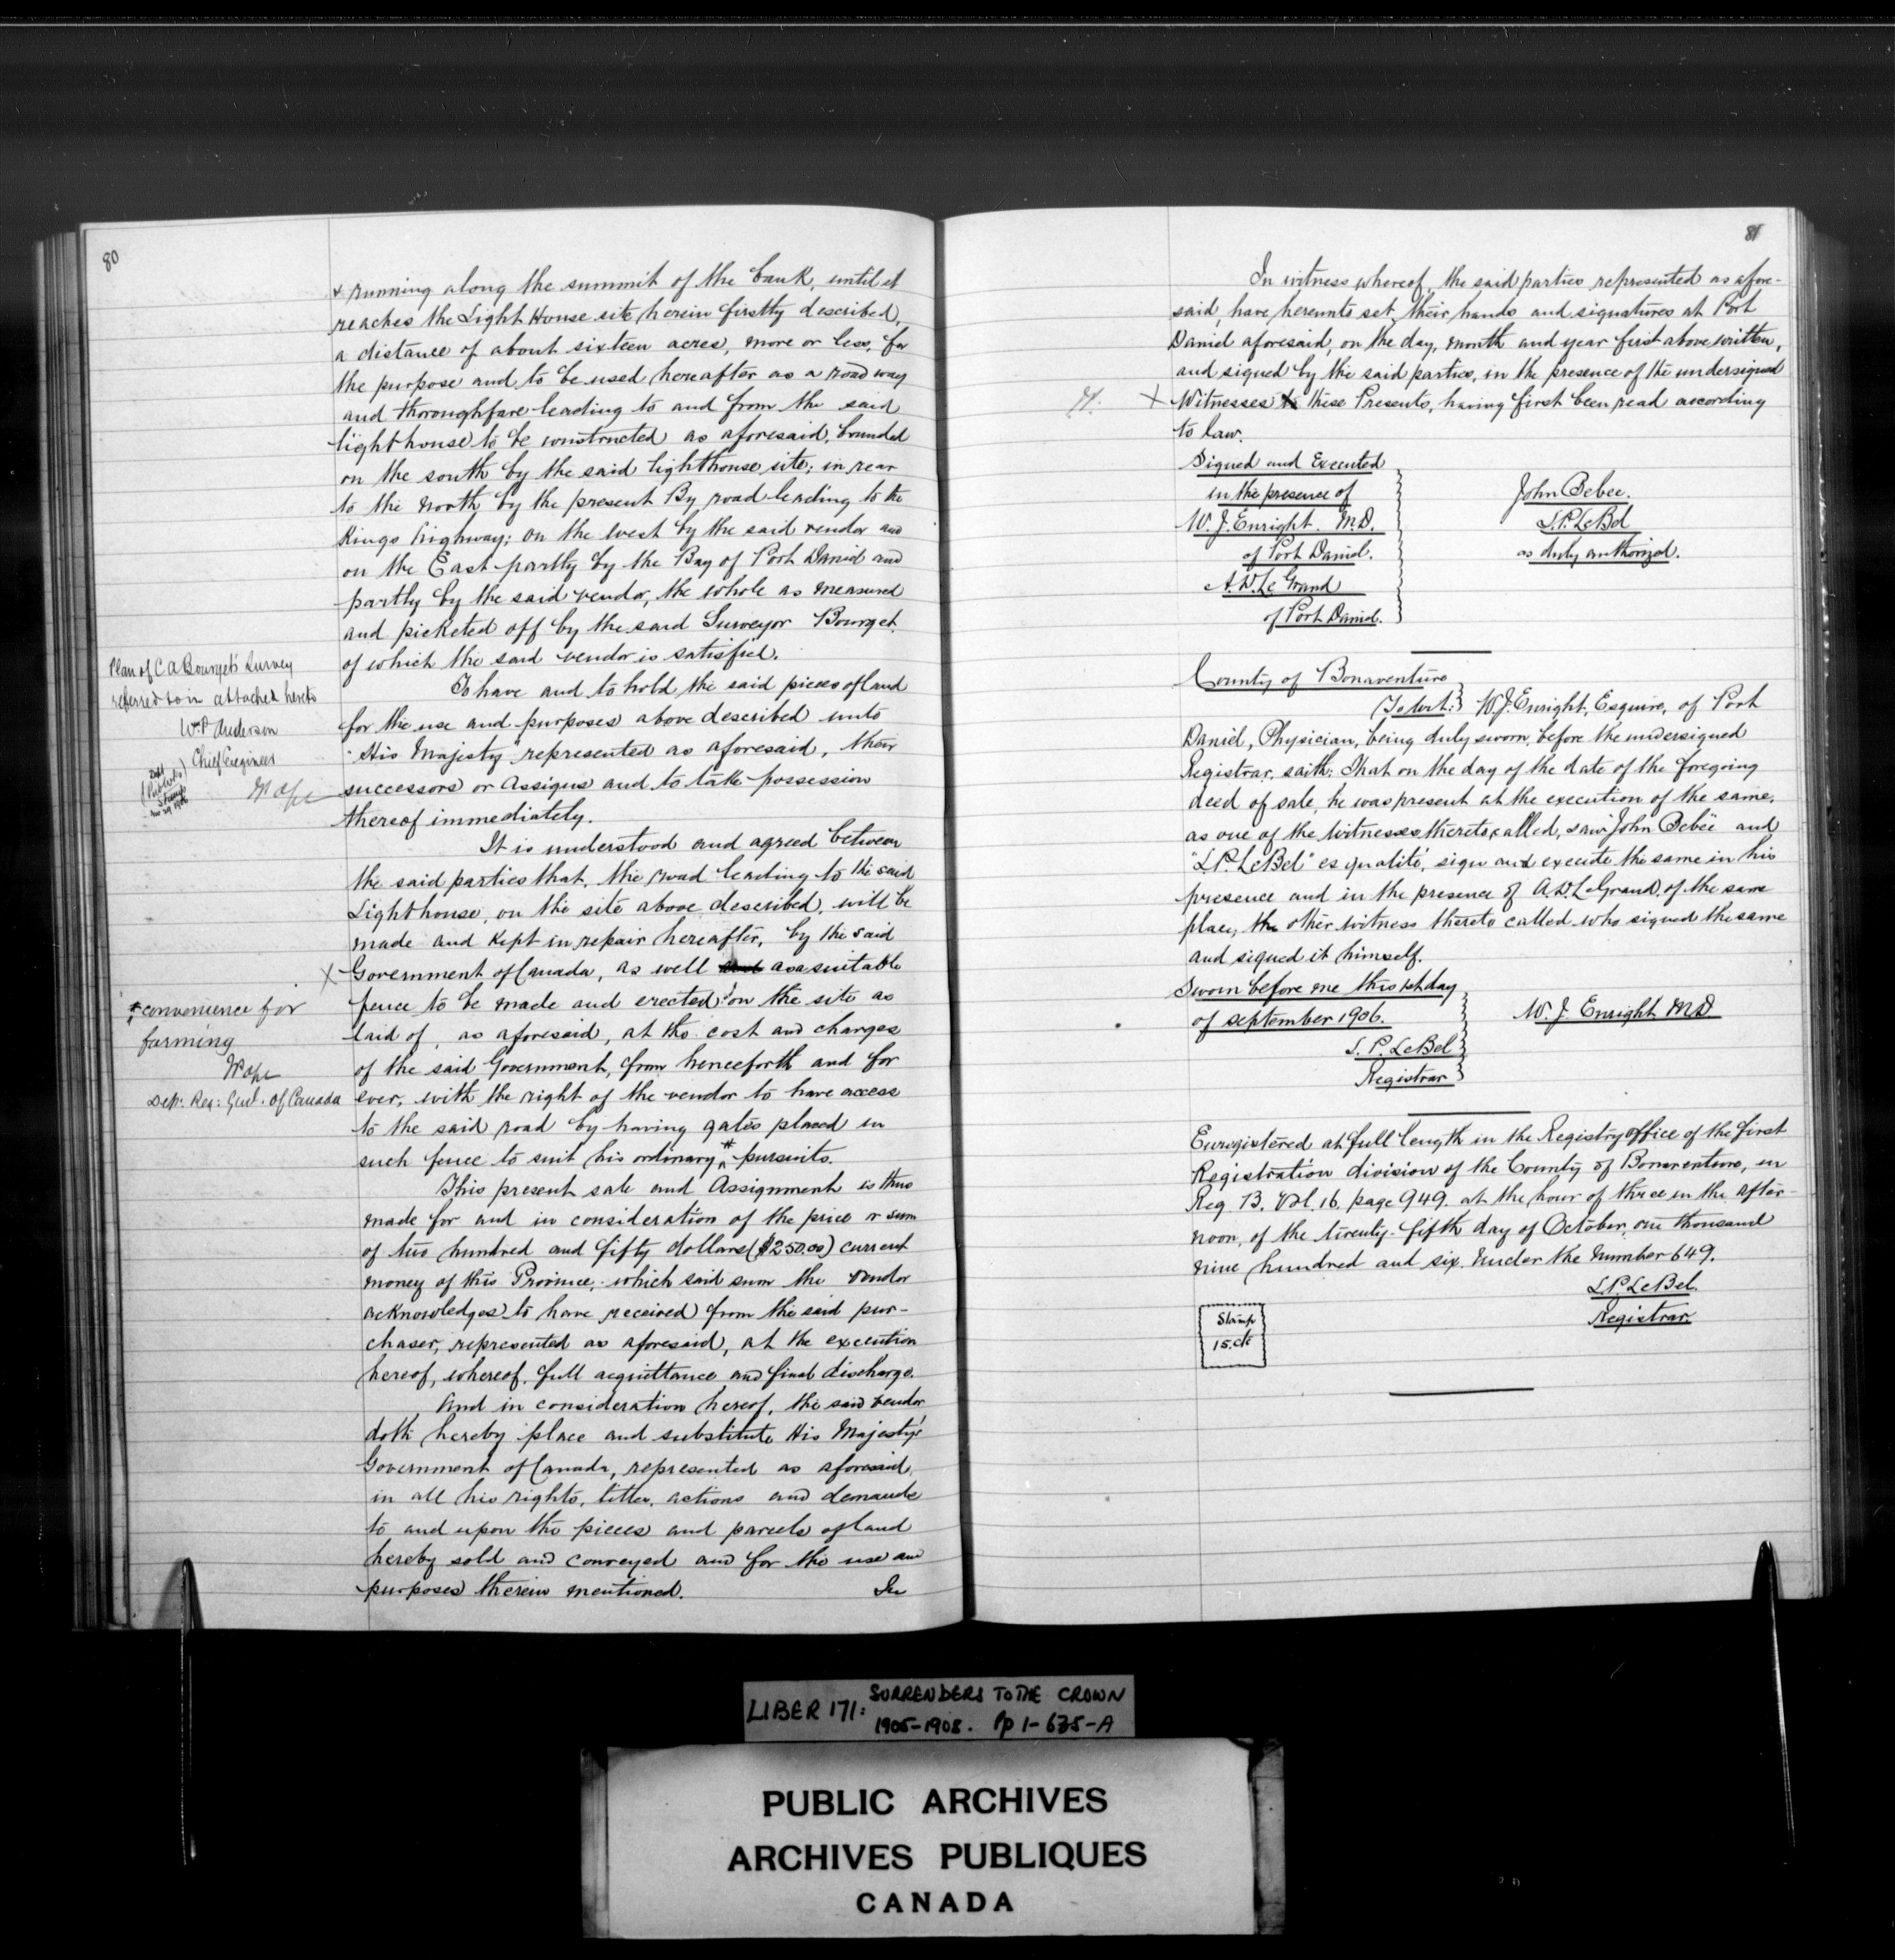 80
& running along the summit of the bank, until it
reaches the Light House site herein firstly described,
a distance of about sixteen acres, more or less, for
the purpose and to be used hereafter as a road way
and thoroughfare leading to and from the said
lighthouse to be constructed as aforesaid, bounded
on the south by the said lighthouse site; in rear
to the north by the present By road leading to the
Kings highway; on the west by the said vendor and
on the East partly by the Bay of Port Daniel and
partly by the said vendor, the whole as measured
and picketed off by the said Surveyor Bourget.
of which the said vendor is satisfied.
Plan of C A Bourget's Survey
referred to in attached hereto
Wm P Anderson
Chief Engineer
To have and to hold the said pieces of land
for the use and purposes above described unto
"His Majesty" represented as aforesaid, their
successors or assigns and to take possession
thereof immediately.
It is understood and agreed between
the said parties that, the road leading to the said
Lighthouse, on the site above described, will be
made and kept in repair hereafter, by the said
X Government of Canada, as well and as a suitable
fence to be made and erected on the site as
laid of, as aforesaid, at the cost and charges
of the said Government, from henceforth and for
ever, with the right of the vendor to have access
to the said road by having gates placed in
such fence to suit his ordinary * pursuits.
* convenience for
farming
Dep: Reg: Genl. of Canada
This present sale and Assignment is thus
made for and in consideration of the price or sum
of two hundred and fifty dollars ($250.00) current
money of this Province, which said sum the vendor
acknowledges to have received from the said pur-
chaser, represented as aforesaid, at the execution
hereof, whereof, full acquittance and final discharge.
And in consideration hereof, the said vendor
doth hereby place and substitute His Majesty's
Government of Canada, represented as aforesaid,
in all his rights, titles, actions and demands
to and upon the pieces and parcels of land
hereby sold and conveyed and for the use and
purposes therein mentioned. In
81
In witness whereof, the said parties represented as afore-
said, have hereunto set their hands and signatures at Port
Daniel aforesaid, on the day, month and year first above written,
and signed by the said parties, in the presence of the undersigned
X Witnesses these Presents, having first been read according
to law.
Signed and Executed
in the presence of
W. J. Enright. M.D.
of Port Daniel.
A. D. Le Grand
of Port Daniel.
John Bebee.
L.P. LeBel
as duly authorized.
County of Bonaventure
To wit: W. J. Enright, Esquire, of Port
Daniel, Physician, being duly sworn, before the undersigned
Registrar, saith: That on the day of the date of the foregoing
deed of sale, he was present at the execution of the same,
as one of the witnesses thereto called, saw "John Bebee and
"L.P. LeBel" es qualité, sign and execute the same in his
presence and in the presence of A. D. LeGrand, of the same
place, the other witness thereto called who signed the same
and signed it himself.
Sworn before me this 1st day
of September 1906.
L. P. LeBel
Registrar
W. J. Enright MD
Enregistered at full length in the Registry office of the first
Registration division of the County of Bonaventure, in
Reg B. Vol. 16, page 949. at the hour of three in the after-
noon, of the twenty-fifth day of October, one thousand
nine hundred and six, under the Number 649.
L.P. LeBel
Registrar.
Stamp
15.cts
LIBER 171: SURRENDERS TO THE CROWN
1905-1908. Pp 1-675-A
PUBLIC ARCHIVES
ARCHIVES PUBLIQUES
CANADA